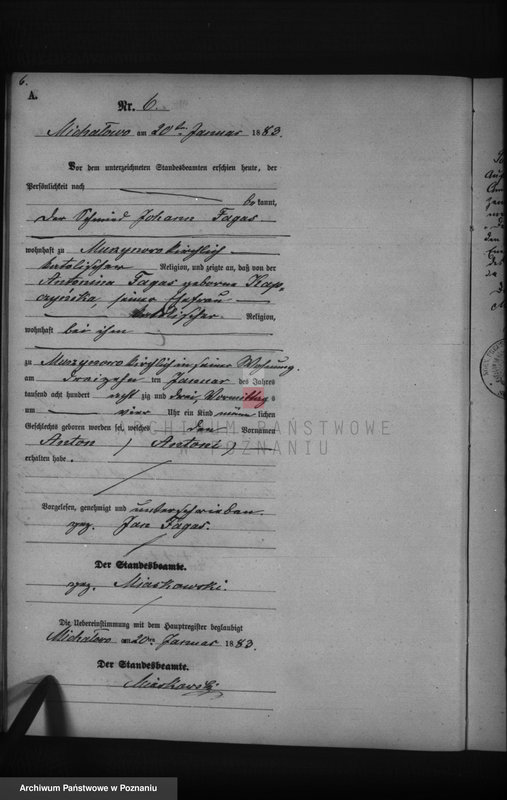 6.
A.
Nr. 6.
Michałowo am 20ten Januar 1883.
Vor dem unterzeichneten Standesbeamten erschien heute, der
Persönlichkeit nach
be kannt,
der Schmied Johann Fagas
wohnhaft zu Muszynowo kirchlich
katolischer Religion, und zeigte an, daß von der
Antonina Fagas geborene Kap-
czyńska, seiner Ehefrau
katolischer Religion,
wohnhaft bei ihm
zu Muszynowo kirchlich in seiner Wohnung
am dreizehn ten Januar des Jahres
tausend acht hundert acht zig und drei, Vormittag s
um vier Uhr ein Kind männ lichen
Geschlechts geboren worden sei, welches den Vornamen
Anton / Antoni /
erhalten habe.
Vorgelesen, genehmigt und unterschrieben.
gez. Jan Fagas.
Der Standesbeamte.
gez. Miaskowski.
Die Uebereinstimmung mit dem Hauptregister beglaubigt
Michałowo am 20ten Januar 1883.
Der Standesbeamte.
Miaskowski
ARCHIWUM PAŃSTWOWE
W POZNANIU
Archiwum Państwowe w Poznaniu